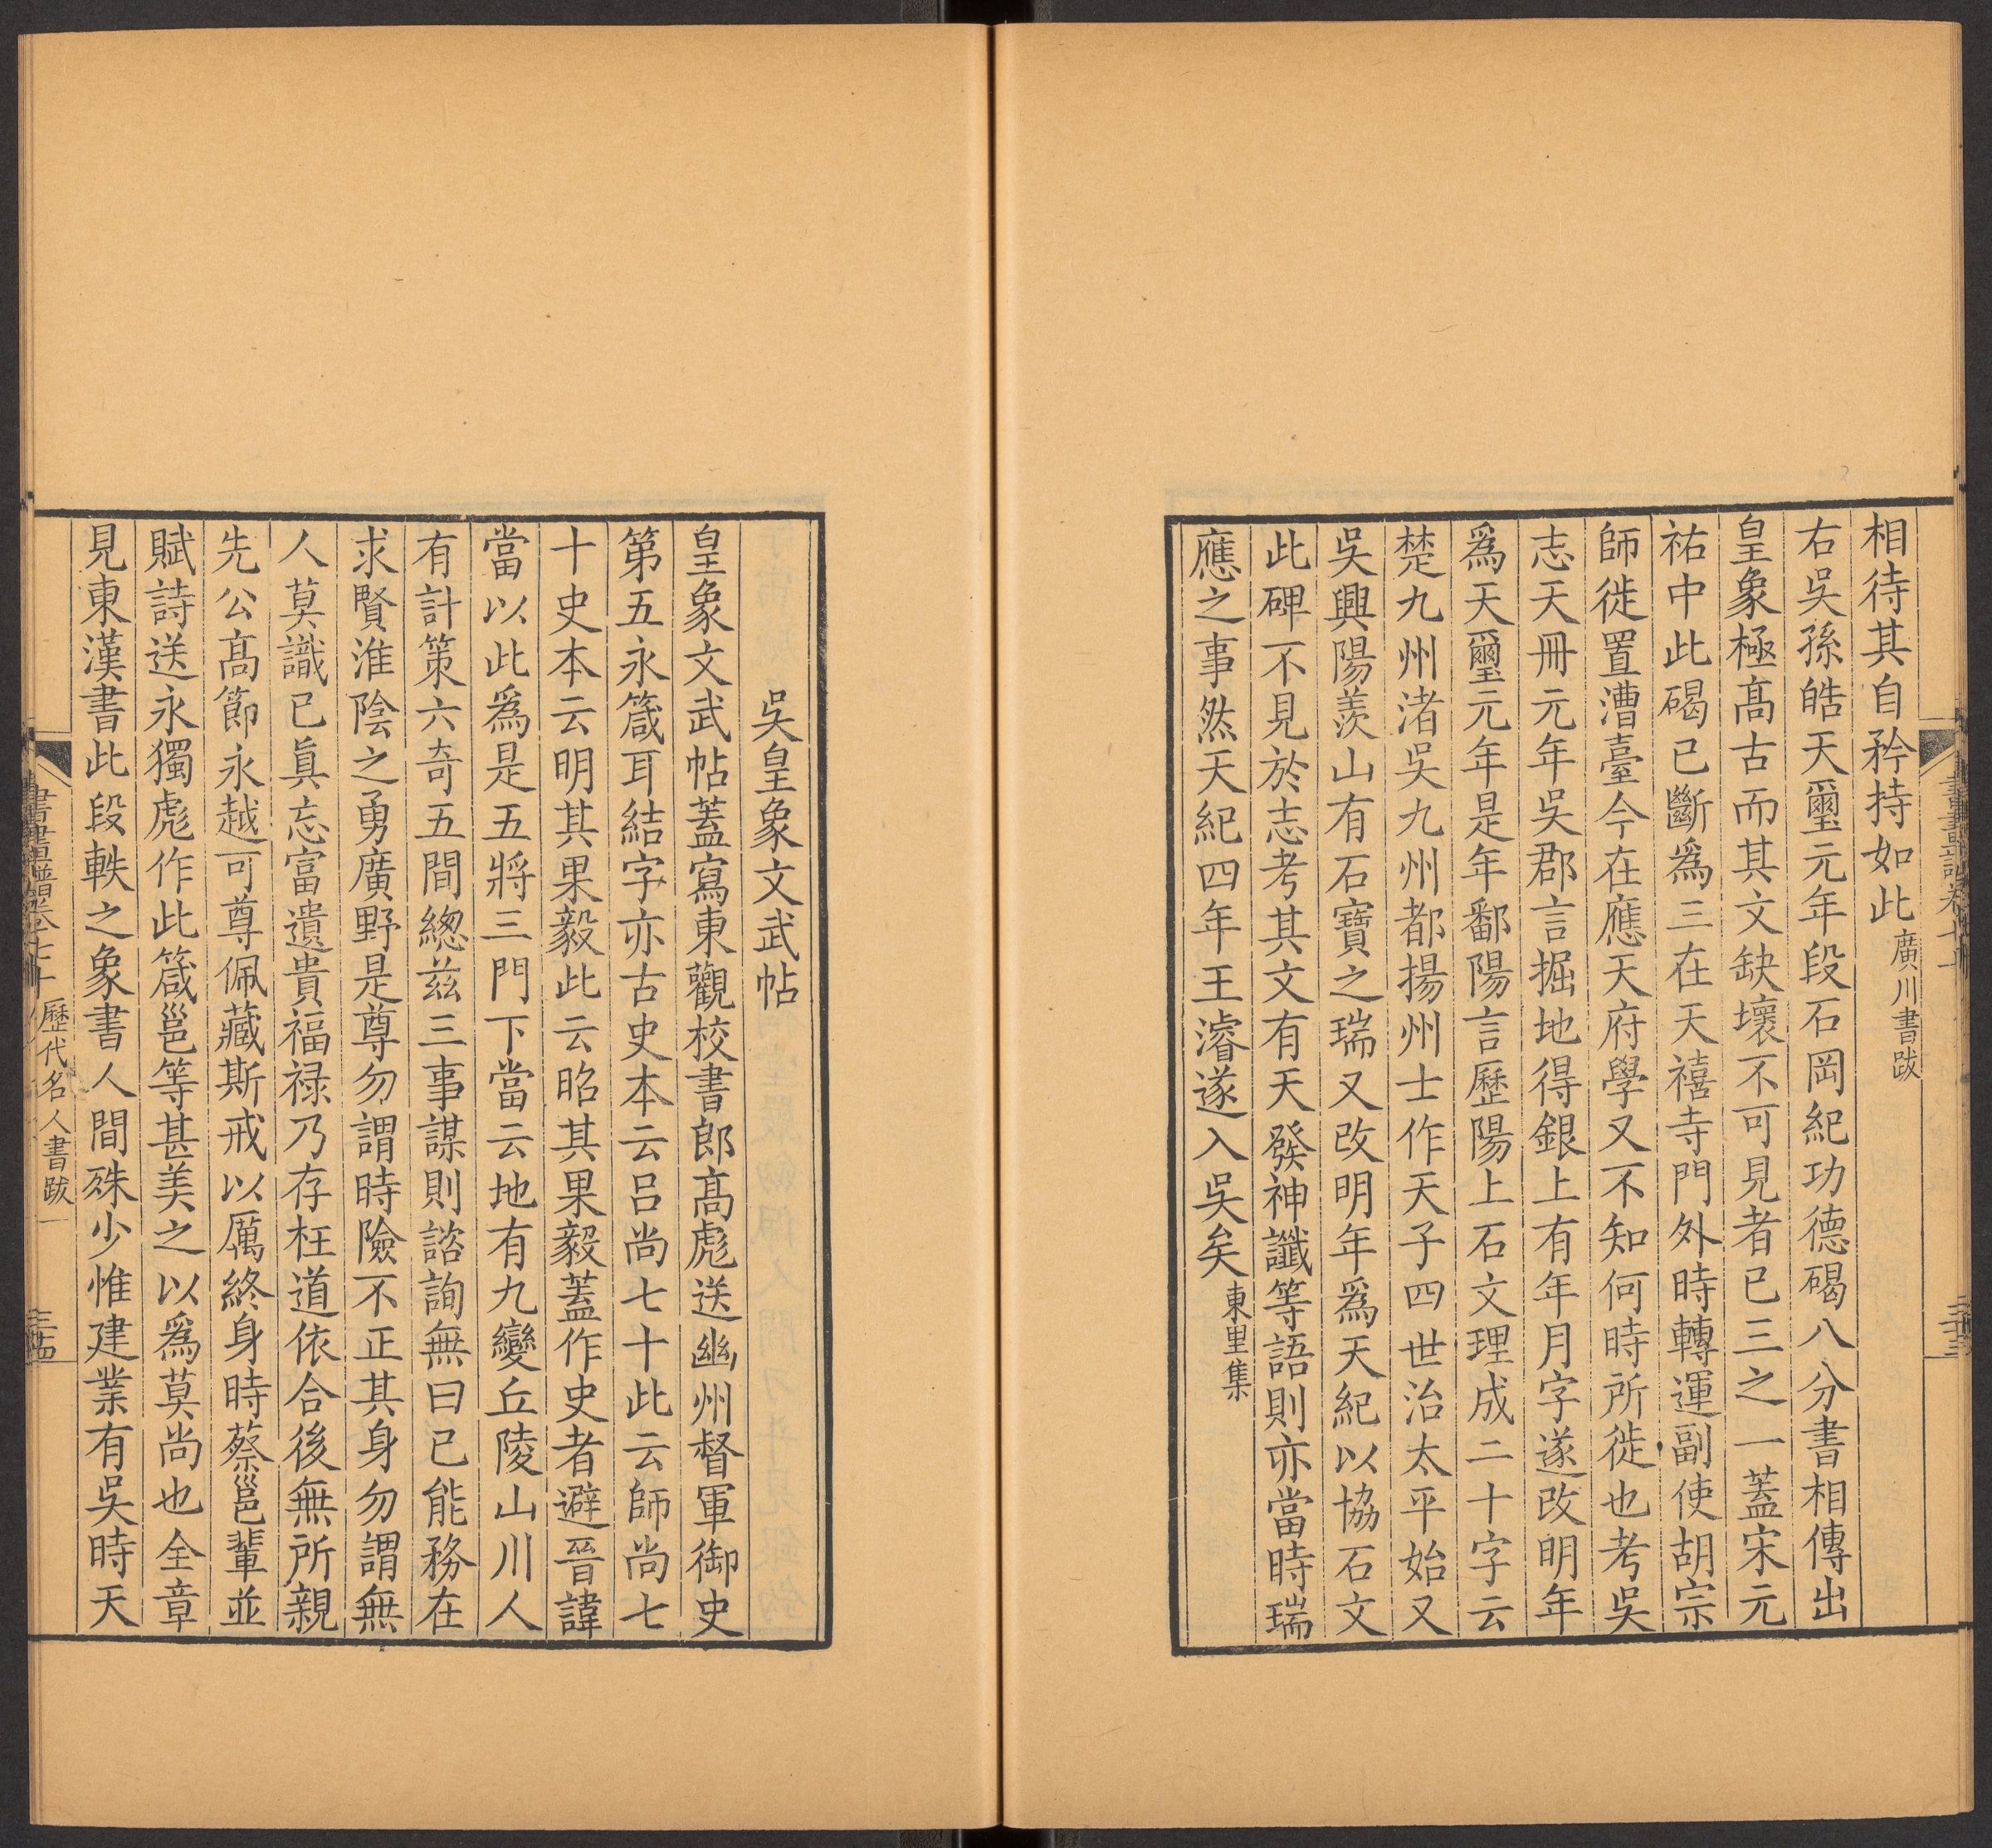 相待其自矜持如此廣川書跋
右吳孫皓天璽元年段石岡紀功德碣八分書相傳出
皇象極髙古而其文缺壞不可見者已三之一蓋宋元
祐中此碣已斷爲三在天禧寺門外時轉運副使胡宗
師徙置漕臺今在應天府學又不知何時所徙也考吳
志天冊元年吳郡言掘地得銀上有年月字遂改明年
爲天璽元年是年鄱陽言歷陽上石文理成二十字云
楚九州渚吳九州都揚州士作天子四世治太平始又
吳興陽羨山有石寶之瑞又改明年爲天紀以協石文
此碑不見於志考其文有天發神讖等語則亦當時瑞
應之事然天紀四年王濬遂入吳矣東里集
吳皇象文武帖
皇象文武帖蓋寫東觀校書郎髙彪送幽州督軍御史
第五永箴耳結字亦古史本云吕尚七十此云師尚七
十史本云明其果毅此云昭其果毅蓋作史者避晉諱
當以此爲是五將三門下當云地有九變丘陵山川人
有計策六奇五間總兹三事謀則諮詢無曰已能務在
求賢淮陰之勇廣野是尊勿謂時險不正其身勿謂無
人莫識已眞忘富遺貴福禄乃存枉道依合後無所親
先公髙節永越可尊佩藏斯戒以厲終身時蔡邕輩並
賦詩送永獨彪作此箴邕等甚美之以爲莫尚也全章
見東漢書此段軼之象書人間殊少惟建業有吳時天
歷代名人書跋一